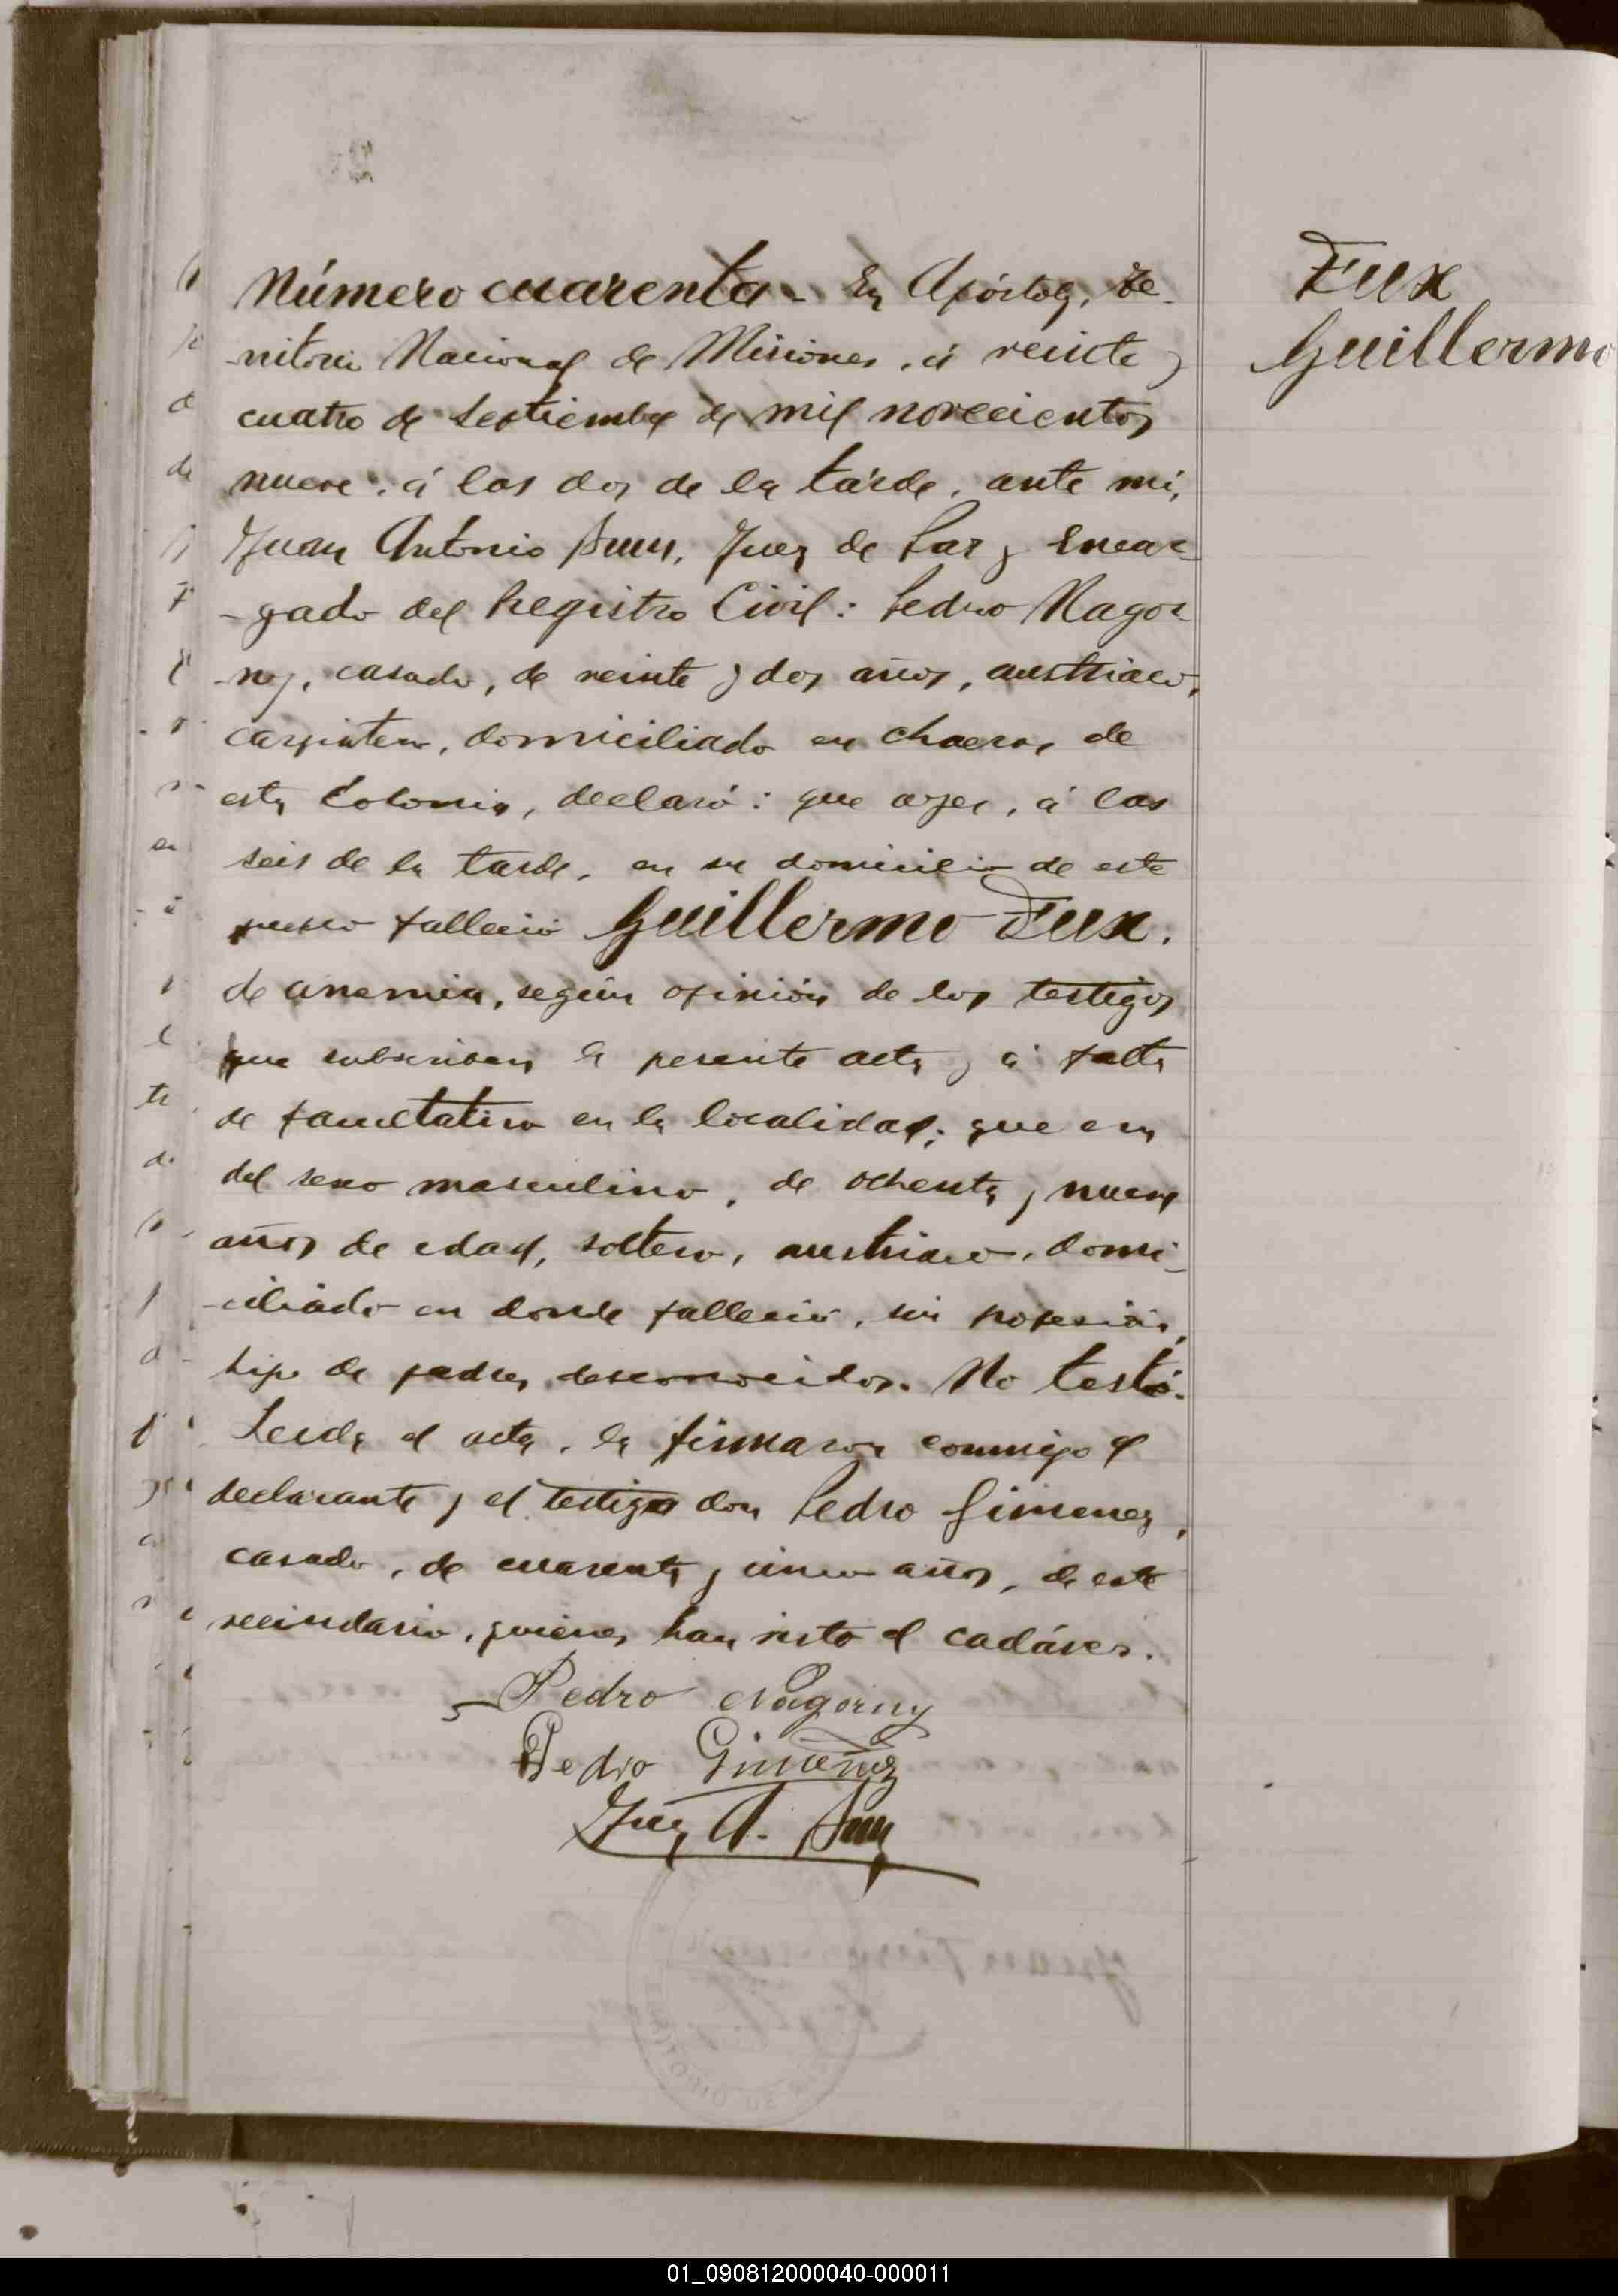 Número cuarenta - En Apóstoles, Te-
rritorio Nacional de Misiones, á veinte y
cuatro de Septiembre de mil novecientos
nueve, á las dos de la tarde, ante mí,
Juan Antonio, Juez de Paz y Encar-
-gado del Registro Civil: Pedro Nagor-
ny, casado, de veinte y dos años, austriaco,
carpintero, domiciliado en chacras de
esta Colonia, declaró: que ayer, á las
seis de la tarde, en su domicilio de este
pueblo falleció Guillermo Fux,
de anemia, según opinión de los testigos
que subscriben la presente acta y á falta
de facultativo en la localidad; que era
del sexo masculino, de ochenta y nueve
años de edad, soltero, austriaco, domi-
-ciliado en donde falleció, sin profesión,
hijo de padres desconocidos. No testó.
Leida el acta, la firmaron conmigo el
declarante y el testigo don Pedro Gimenez,
casado, de cuarenta y cinco años, de este
vecindario, quienes han visto el cadáver.
Pedro Nagorny
Pedro Gimenez
Juan A.
Fux
Guillermo
01_090812000040-000011